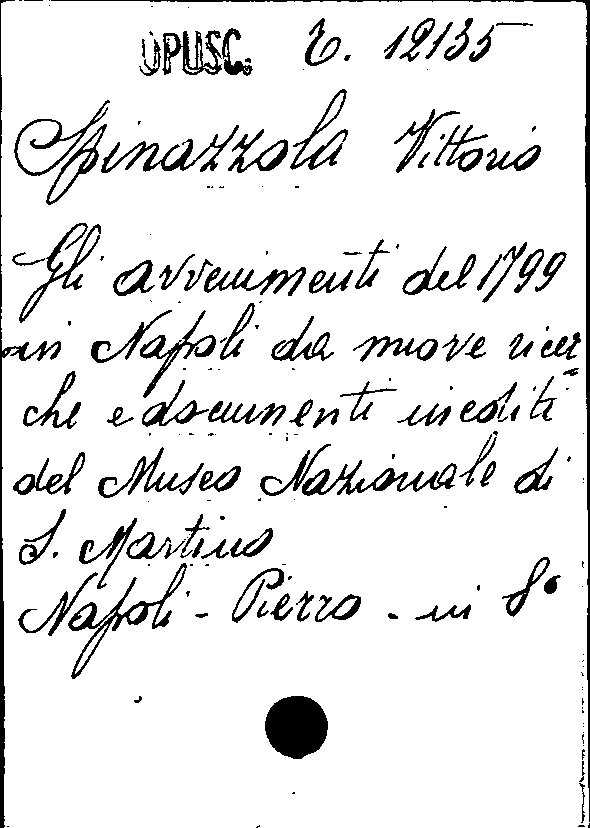 OPUSC. E. 12135
Spinazzola Vittorio
Gli avvenimenti del 1799
in Napoli da nuove ricer
che e documenti inediti
del Museo Nazionale di
S. Martino
Napoli - Pierro - in 8°